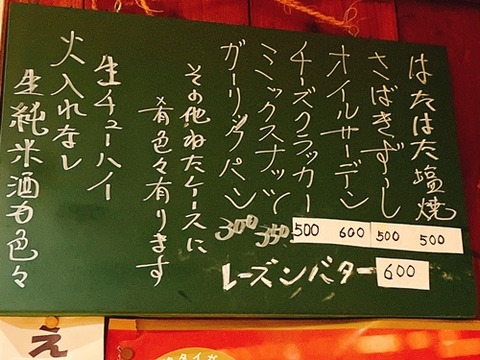 はたはた塩焼 500
さばきずし 500
オイルサーデン 600
チーズクラッカー 500
ミックスナッツ 350
ガーリックパン 300
レーズンバター 600
その他ねたケースに
色々有ります
生チューハイ
火入れなし
生純米酒も色々
え